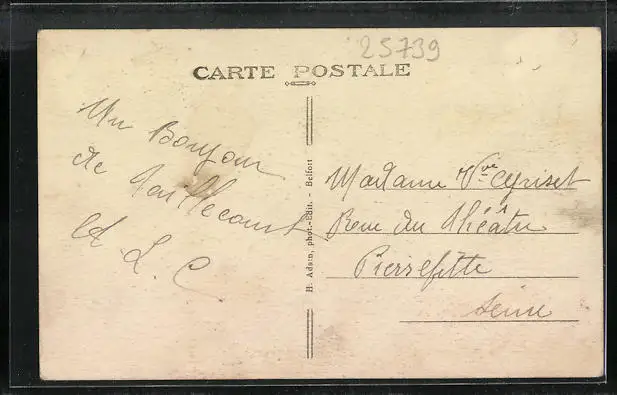 25739
CARTE POSTALE
Un Bonjour
de Taillecourt
A. L. C
H. Adam, phot.-édit. - Belfort
Madame Vve Cyriset
Rue du Théâtre
Pierrefitte
Seine